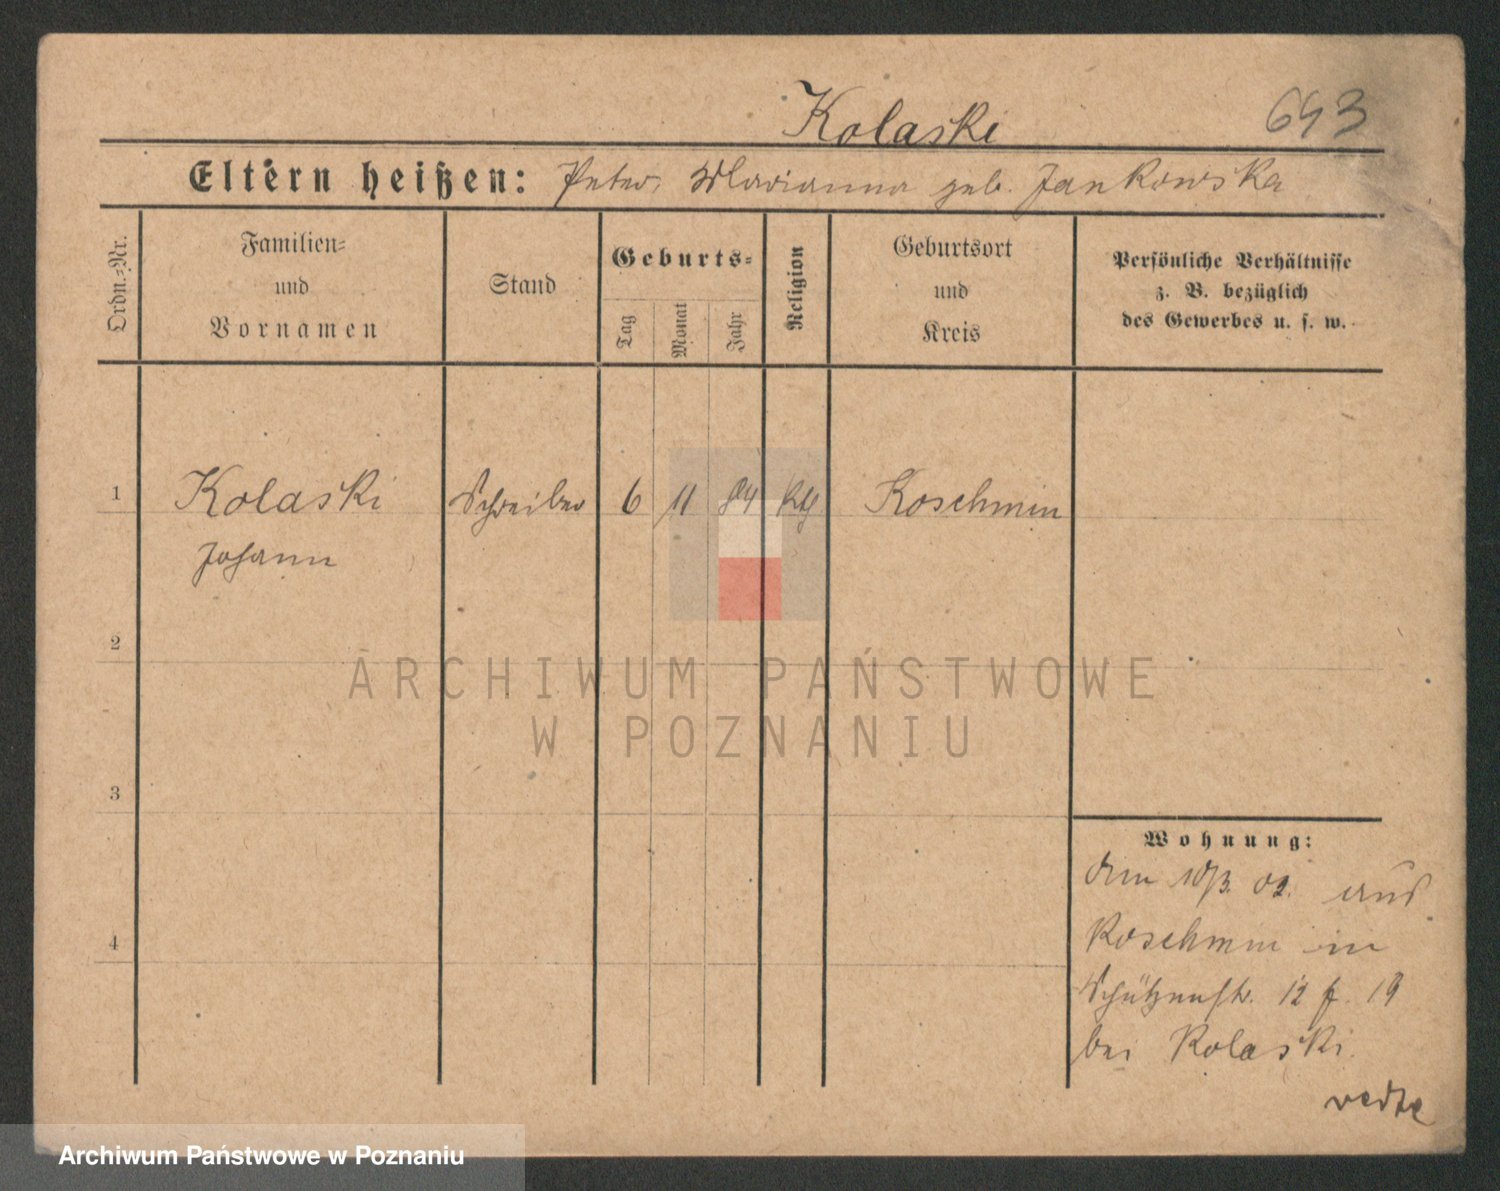 Kolaski 643
Eltern heißen: Peter, Marianna geb. Jankowska
Ordn.=Nr.
Familien=
und
Vornamen
Stand
Geburts=
Tag
Monat
Jahr
Religion
Geburtsort
und
Kreis
Persönliche Verhältnisse
z. B. bezüglich
des Gewerbes u. s. w.
1 Kolaski Schreiber 6 11 84 kth Koschmin
Johann
2
3
4
Wohnung:
10/3. 02. aus
Koschmin in
Schützenstr. 12 19
bei Kolaski.
ARCHIWUM PAŃSTWOWE
W POZNANIU
Archiwum Państwowe w Poznaniu